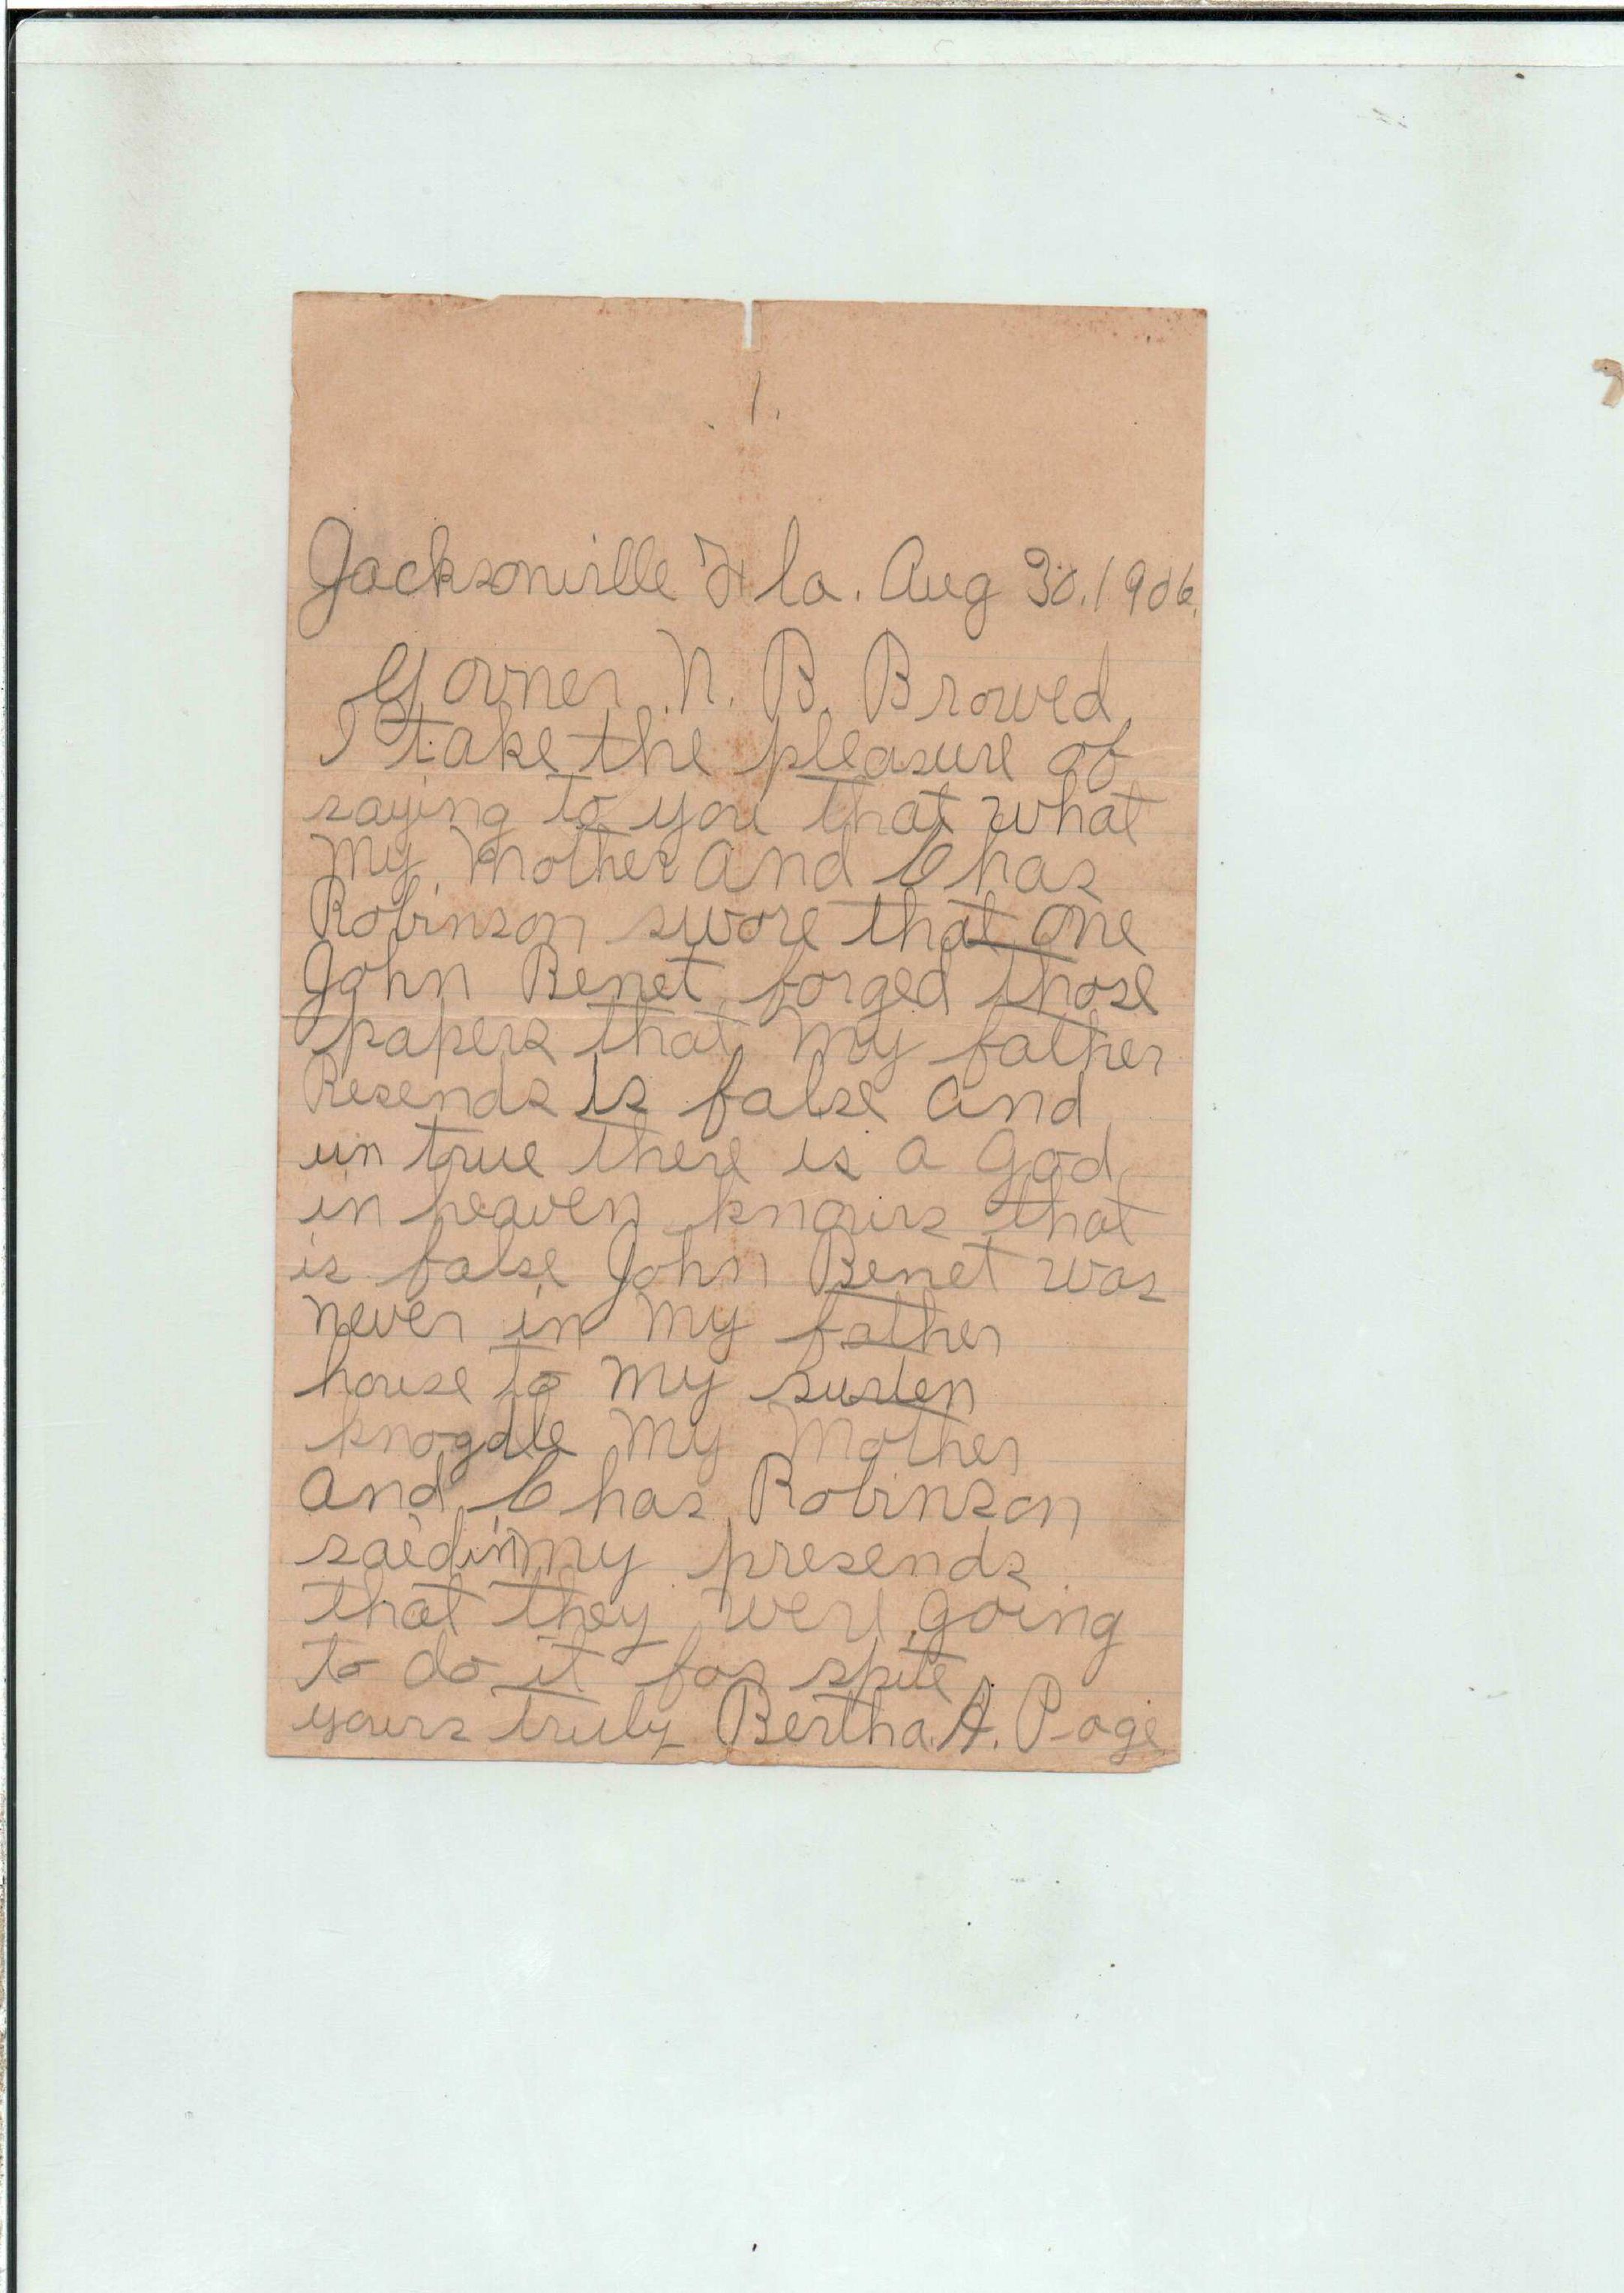 1.
Jacksonville Fla. Aug 30. 1906.
Govner. N. B. Browed,
I take the pleasure of
saying to you that what
My Mother and Chas
Robinson swore that one
John Benet forged those
papers that My father
Resends is false and
un true there is a God
in heaven knows that
is false John Benet was
never in My father
house to My
My Mother
and Chas Robinson
said in my presends
that they were going
to do it for spite.
yours truly Bertha. A. Page